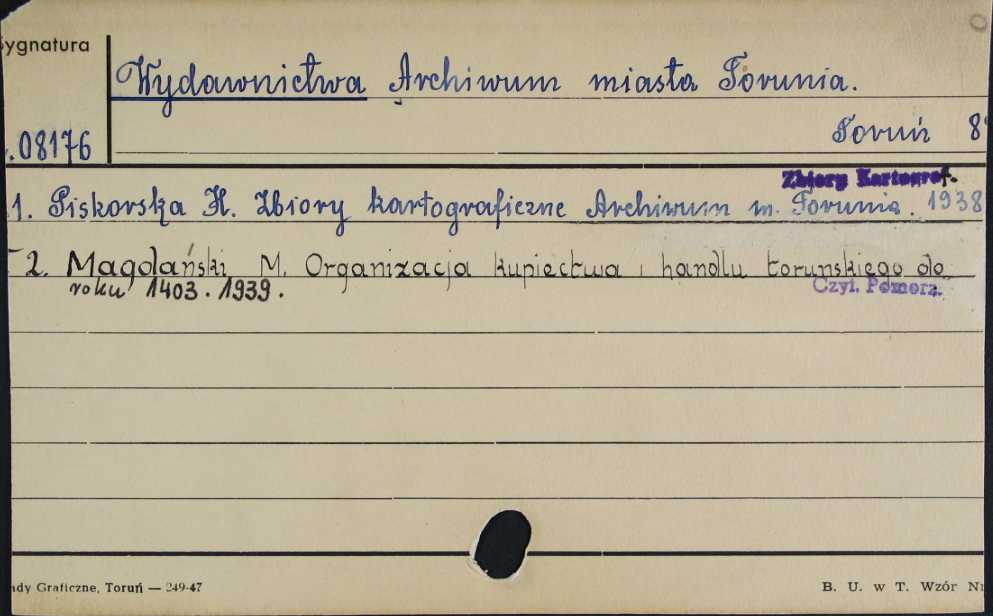 Sygnatura
Wydawnictwa Archiwum miasta Torunia.
Toruń 8°
.08176
Zbiory Kartograf.
1. Piskorska H. Zbiory kartograficzne Archiwum m. Torunia. 1938
2. Magdański M. Organizacja kupiectwa i handlu toruńskiego do
roku 1403. 1939.
Czyt. Pomorz.
ady Graficzne, Toruń — 249-47
B. U. w T. Wzór Nr